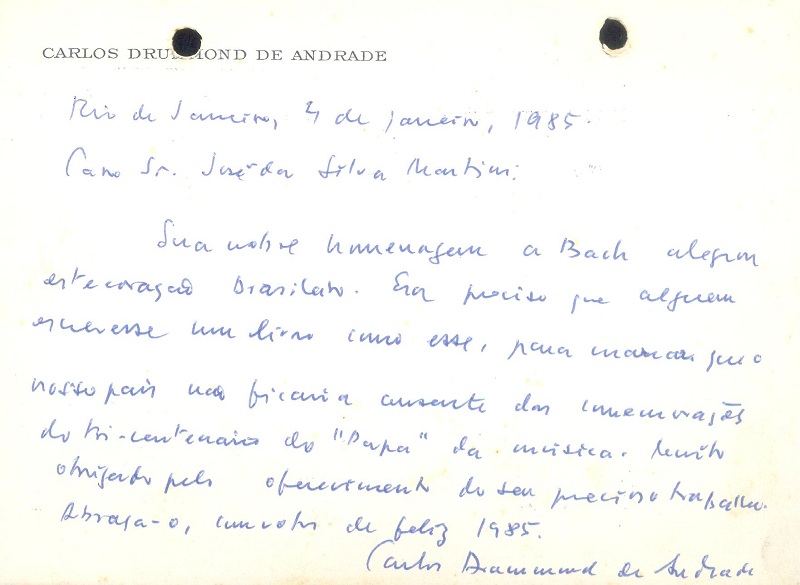 CARLOS DRUMMOND DE ANDRADE
Rio de Janeiro, 4 de janeiro, 1985.
Caro Sr. José da Silva Martins:
Sua nobre homenagem a Bach alegrou
este coração brasileiro. Era preciso que alguém
escrevesse um livro como esse, para marcar que o
nosso país não ficaria ausente das comemorações
do tri-centenário do "Papa" da música. Muito
obrigado pelo oferecimento do seu precioso trabalho.
Abraça-o, com votos de feliz 1985.
Carlos Drummond de Andrade